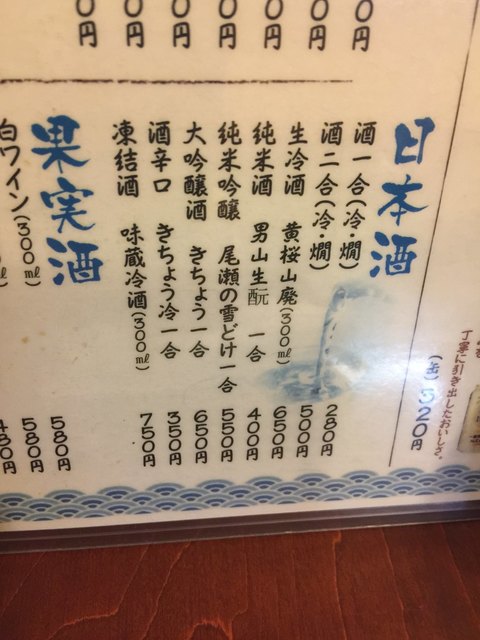 丁寧に引き出したおいしさ。
(缶) 520円
0円
0円
0円
0円
0円
0円
0円
日本酒
酒一合(冷・燗) 280円
酒二合(冷・燗) 500円
生冷酒 黄桜山廃(300㎖) 650円
純米酒 男山生酛 一合 400円
純米吟醸 尾瀬の雪どけ一合 550円
大吟醸酒 きちょう一合 650円
酒辛口 きちょう冷一合 350円
凍結酒 味蔵冷酒(300㎖) 750円
果実酒
白ワイン(300㎖) 580円
580円
480円